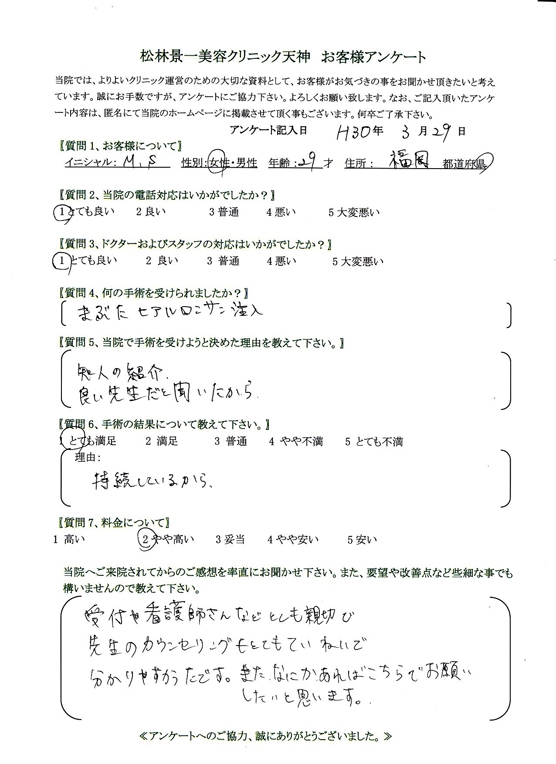 松林景一美容クリニック天神　お客様アンケート
当院では、よりよいクリニック運営のための大切な資料として、お客様がお気づきの事をお聞かせ頂きたいと考え
ています。誠にお手数ですが、アンケートにご協力下さい。よろしくお願い致します。なお、ご記入頂いたアンケ
ート内容は、匿名にて当院のホームページに掲載させて頂く事もございます。何卒ご了承下さい。
アンケート記入日　H30年　3月29日
〖質問1、お客様について〗
イニシャル：M.S　性別：女性・男性　年齢：29才　住所：福岡　都道府県
〖質問2、当院の電話対応はいかがでしたか？〗
1とても良い　2良い　3普通　4悪い　5大変悪い
〖質問3、ドクターおよびスタッフの対応はいかがでしたか？〗
1とても良い　2 良い　3 普通　4悪い　5大変悪い
〖質問4、何の手術を受けられましたか？〗
まぶた ヒアルロンサン注入
〖質問5、当院で手術を受けようと決めた理由を教えて下さい。〗
知人の紹介.
良い先生だと聞いたから.
〖質問6、手術の結果について教えて下さい。〗
1 とても満足　2 満足　3 普通　4 やや不満　5 とても不満
理由：
持続しているから、
〖質問7、料金について〗
1 高い　2やや高い　3妥当　4やや安い　5安い
当院へご来院されてからのご感想を率直にお聞かせ下さい。また、要望や改善点など些細な事でも
構いませんので教えて下さい。
受付や看護師さんなどとても親切で
先生のカウンセリングもとてもていねいで
分かりやすかったです。また、なにかあればこちらでお願い
したいと思います。
≪アンケートへのご協力、誠にありがとうございました。≫